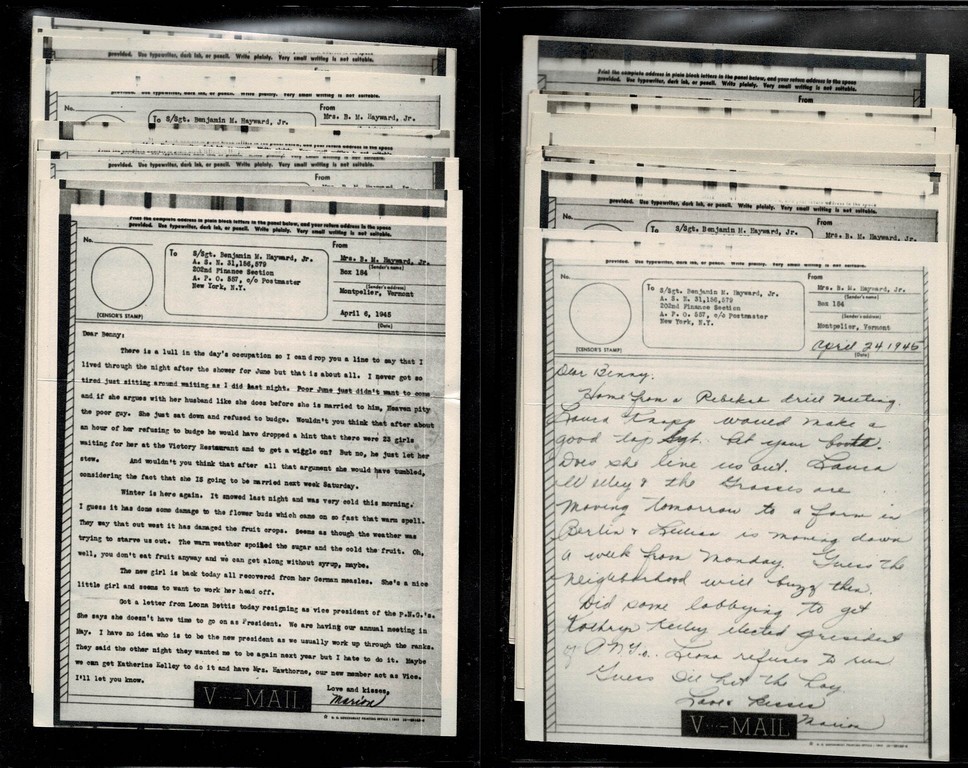 provided. Use typewriter, dark ink, or pencil. Write plainly. Very small writing is not suitable.
provided. Use typewriter, dark ink, or pencil. Write plainly. Very small writing is not suitable.
No.
From
To S/Sgt. Benjamin M. Hayward, Jr.
Mrs. B. M. Hayward, Jr.
provided. Use typewriter, dark ink, or pencil. Write plainly. Very small writing is not suitable.
From
Print the complete address in plain block letters in the panel below, and your return address in the space
provided. Use typewriter, dark ink, or pencil. Write plainly. Very small writing is not suitable.
No.
(CENSOR'S STAMP)
To
S/Sgt. Benjamin M. Hayward, Jr.
A. S. N. 31,156,579
202nd Finance Section
A. P. O. 557, c/o Postmaster
New York, N.Y.
From
Mrs. B. M. Hayward, Jr.
(Sender's name)
Box 184
(Sender's address)
Montpelier, Vermont
April 6, 1945
(Date)
Dear Benny;
There is a lull in the day's occupation so I can drop you a line to say that I
lived through the night after the shower for June but that is about all. I never got so
tired just sitting around waiting as I did last night. Poor June just didn't want to come
and if she argues with her husband like she does before she is married to him, Heaven pity
the poor guy. She just sat down and refused to budge. Wouldn't you think that after about
an hour of her refusing to budge he would have dropped a hint that there were 23 girls
waiting for her at the Victory Restaurant and to get a wiggle on? But no, he just let her
stew. And wouldn't you think that after all that argument she would have tumbled,
considering the fact that she IS going to be married next week Saturday.
Winter is here again. It snowed last night and was very cold this morning.
I guess it has done some damage to the flower buds which came on so fast that warm spell.
They say that out west it has damaged the fruit crops. Seems as though the weather was
trying to starve us out. The warm weather spoiled the sugar and the cold the fruit. Oh,
well, you don't eat fruit anyway and we can get along without syrup, maybe.
The new girl is back today all recovered from her German measles. She's a nice
little girl and seems to want to work her head off.
Got a letter from Leona Bettis today resigning as vice president of the P.N.G.'s.
She says she doesn't have time to go on as President. We are having our annual meeting in
May. I have no idea who is to be the new president as we usually work up through the ranks.
They said the other night they wanted me to be again next year but I hate to do it. Maybe
we can get Katherine Kelley to do it and have Mrs. Hawthorne, our new member act as Vice.
I'll let you know.
Love and kisses,
Marion
V···—MAIL
Print the complete address in plain block letters in the panel below, and your return address in the space
provided. Use typewriter, dark ink, or pencil. Write plainly. Very small writing is not suitable.
From
provided. Use typewriter, dark ink, or pencil. Write plainly. Very small writing is not suitable.
No.
From
To S/Sgt. Benjamin M. Hayward, Jr.
Mrs. B. M. Hayward, Jr.
provided. Use typewriter, dark ink, or pencil. Write plainly. Very small writing is not suitable.
No.
(CENSOR'S STAMP)
To
S/Sgt. Benjamin M. Hayward, Jr.
A. S. N. 31,156,579
202nd Finance Section
A. P. O. 557, c/o Postmaster
New York, N.Y.
From
Mrs. B. M. Hayward, Jr.
(Sender's name)
Box 184
(Sender's address)
Montpelier, Vermont
April 24 1945
(Date)
Dear Benny.
Home from a Rebekah drill meeting.
Laura Knapp would make a
good top Sgt. at your
Does she line us out. Laura
Willey & the Grasses are
moving tomorrow to a farm in
Berlin & is moving down
a week from Monday. Guess the
neighborhood will buzz then.
Did some lobbying to get
Kathryn Kelley elected president
of P.N.G.s. Leona refuses to run
Guess I'll hit the hay
Love & Kisses
Marion
V···—MAIL